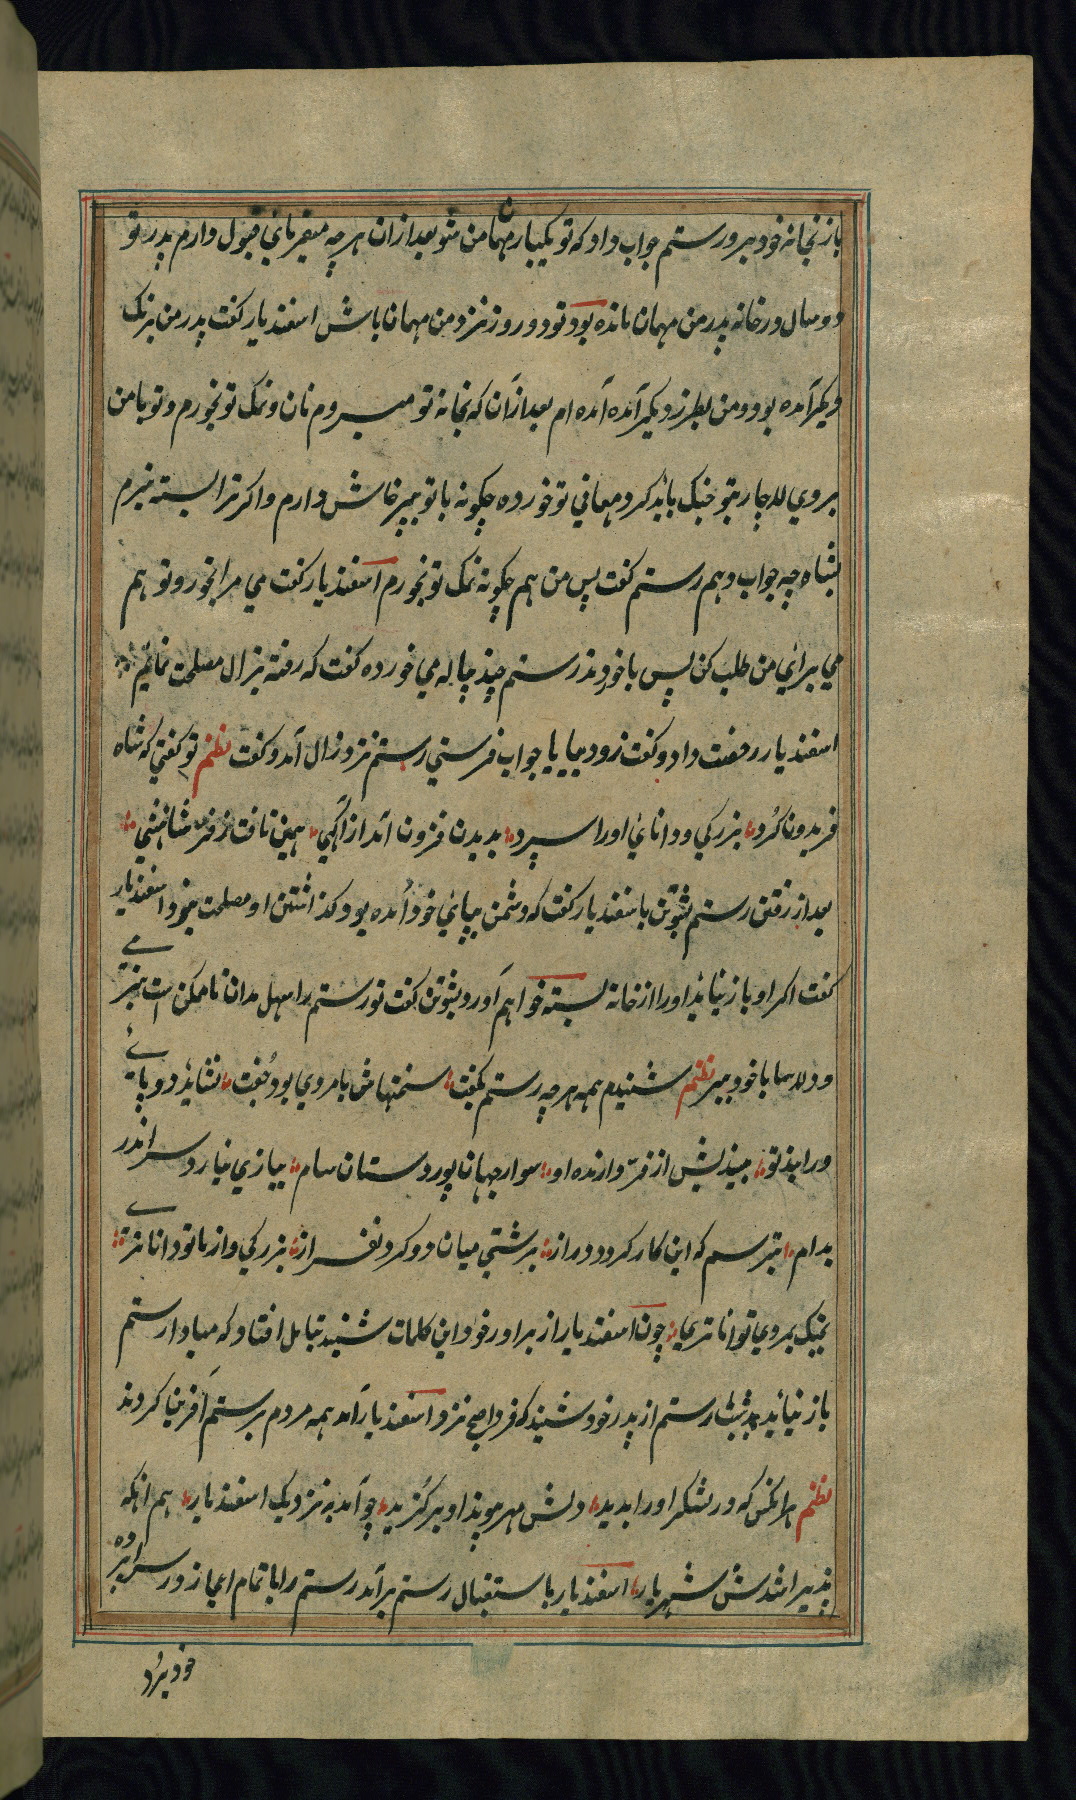 باز نجانه خود برو رستم جواب داد که تو یکبار مهمان من شو بعد ازان هر چه میفرمائی قبول دارم پدر تو
دو سال در خانه پدر من مهمان مانده بود تو دو روز نزد من مهمان باش اسفندیار کفت پدر من برنک
دیکر آمده بود و من بطرز دیکر آمده ام بعد ازان که نجانه تو میروم نان و نمک تو نخورم و تو با من
بروی لاچار بتو جنک باید کرد مهمانی تو خورده چکونه با تو پرخاش دارم و اکر ترا بسته نبرم
بشاه چه جواب دهم رستم کفت پس من هم چکونه نمک تو نخورم اسفندیار کفت می مرا بخور و تو هم
می برای من طلب کن پس با خود نزد رستم چند پیاله می خورده کفت که رفته بزال مصلحت نمایم
اسفندیار رخصت داد و کفت زود بیا یا جواب فرستی رستم نزد زال آمد و کفت نظم تو کفتی که شاه
فریدون کرد بزرکی و دانائی او را سپرد بدیدن فزون آمد از آکهی همی تافت زو فر شاهنشهی
بعد از رفتن رستم پشوتن باسفندیار کفت که دشمن بپای خود آمده بود کذاشتن او مصلحت نبود اسفندیار
کفت اکر او باز نیاید او را از خانه بسته خواهم آورد پشوتن کفت تو رستم را سهل مدان ناممکن است
نظم شنیدم همه هر چه رستم بکفت سخنهاش با مردمی بود جفت نساید دو پای
ورا بند تو میندیش از فر و ارنده او سوار جهان پور دستان سام ببازی نیارد سر اندر
بدام بترسم که این کار کردد دراز بزشتی میان دو کردنفراز بزرکی و از ما تو داناتری
بجنک بمردی تواناتری چون اسفندیار از برادر خود این کلمات شنید بتامل افتاد که مبادا رستم
باز نیاید رستم از پدر خود شنید که فردا صبح نزد اسفندیار آمد همه مردم بر رستم آفرین کردند
نظم هر انکس که در لشکر او را بدید دلش مهر و پیوند او برکزید چو آمد به نزدیک اسفندیار هم انکه
پذیرا شدش شهریار اسفندیار باستقبال رستم برآمد رستم را با تمام اعزاز در سراپرده
خود برد